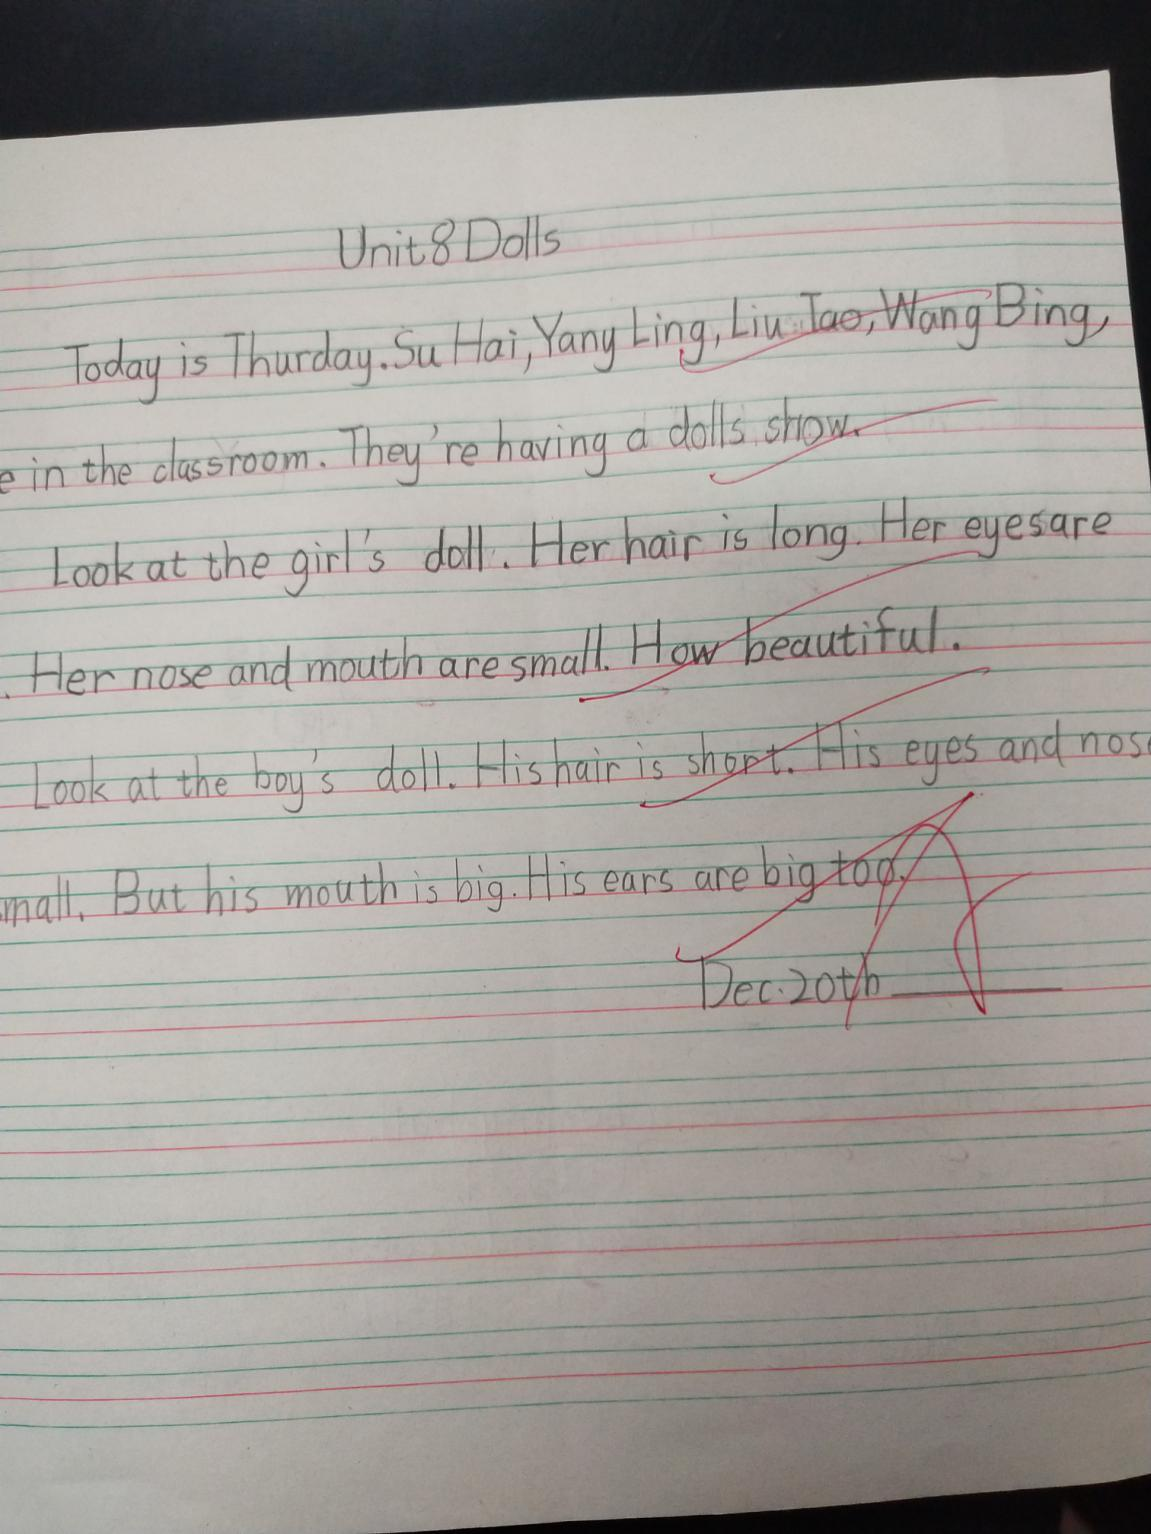 Unit 8 Dolls
Today is Thurday. Su Hai, Yang Ling, Liu Tao, Wang Bing,
e in the classroom. They're having a dolls show.
Look at the girl's doll. Her hair is long. Her eyes are
. Her nose and mouth are small. How beautiful.
Look at the boy's doll. His hair is short. His eyes and nose
mall. But his mouth is big. His ears are big too.
Dec. 20th